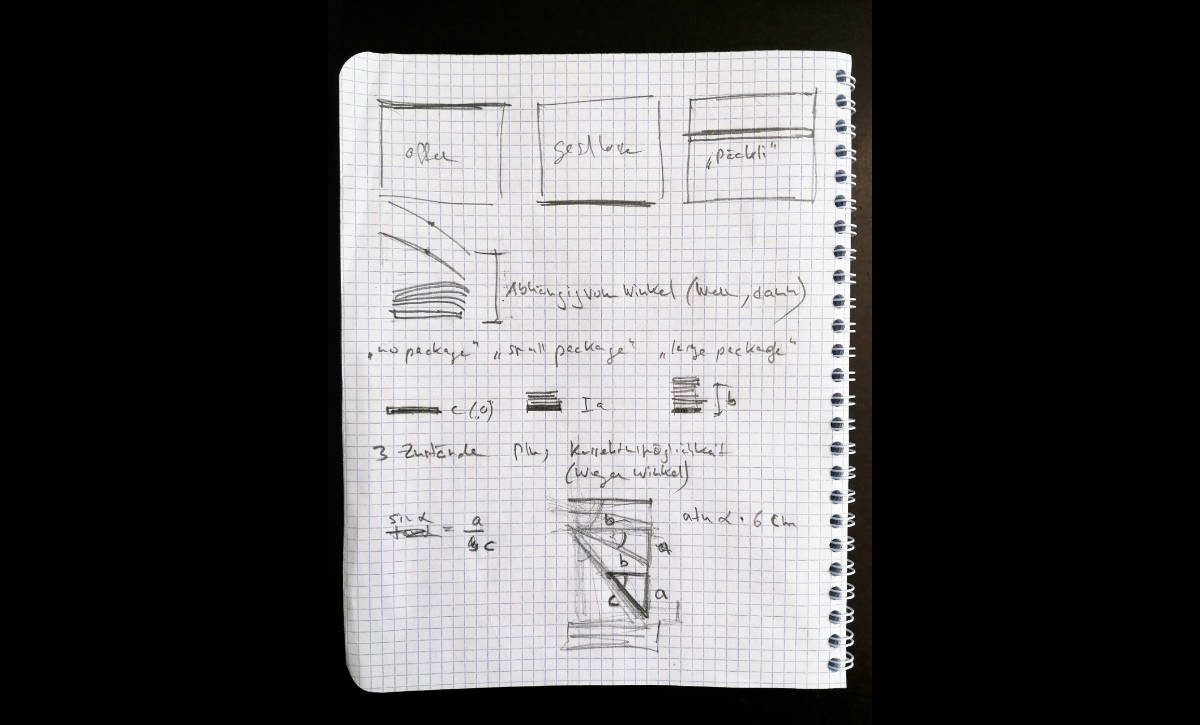 offen
geschlossen
„Päckli“
Abhängig vom Winkel (Wenn, dann)
„no package“ „small package“ „large package“
c (0)
I a
b
3 Zustände Plus Korrekturmöglichkeit
(Wegen Winkel)
sin α = a
c
b
a
b
c
a
α · 6 cm